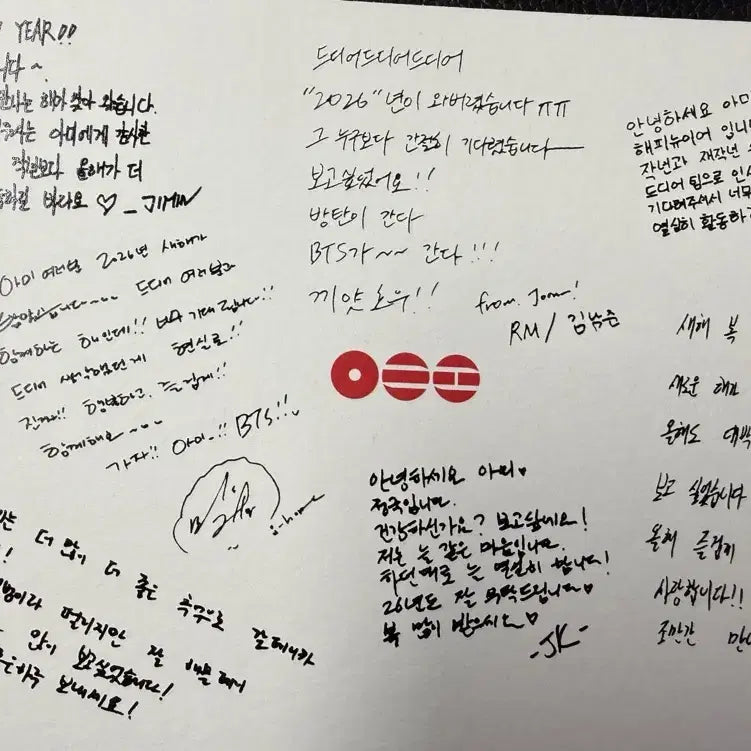 YEAR!!
니다~.
해가 찾아 왔습니다.
아미에게 감사한
작년보다 올해가 더
바라요 ♡ _JIMIN
드디어드디어드디어
"2026"년이 와버렸습니다 ㅠㅠ
그 누구보다 간절히 기다렸습니다
보고싶었어요!!
방탄이 간다
BTS가~~ 간다!!!
끼얏호우!!
from. Joon!
RM / 김남준
안녕하세요 아미
해피뉴이어 입니
작년과 재작년
드디어 팀으로 인사
기다려주셔서 너무
열심히 활동하
아미 여러분 2026년 새해가
드디어 여러분과
함께하는 해인데!! 너무 기대됩니다!!
드디어 생각했던게 현실로!!
진짜!! 행복하고, 즐겁게!!
함께해요~~~
가자!! 아미..!! BTS!!
j-hope
더 많이 더 좋은 추억으로
멀리지만 잘
많이 보고싶었습니다!
하루 보내세요!
안녕하세요 아미♥
정국입니다.
건강하신가요? 보고싶네요!
저는 늘 같은 마음입니다.
하던대로 늘 열심히 합니다!
26년도 잘 부탁드립니다♥
복 많이 받으시오♥
-JK-
새해 복
새로운
올해도 대박
보고 싶었습니다
올해 즐겁게
사랑합니다!!
조만간 만